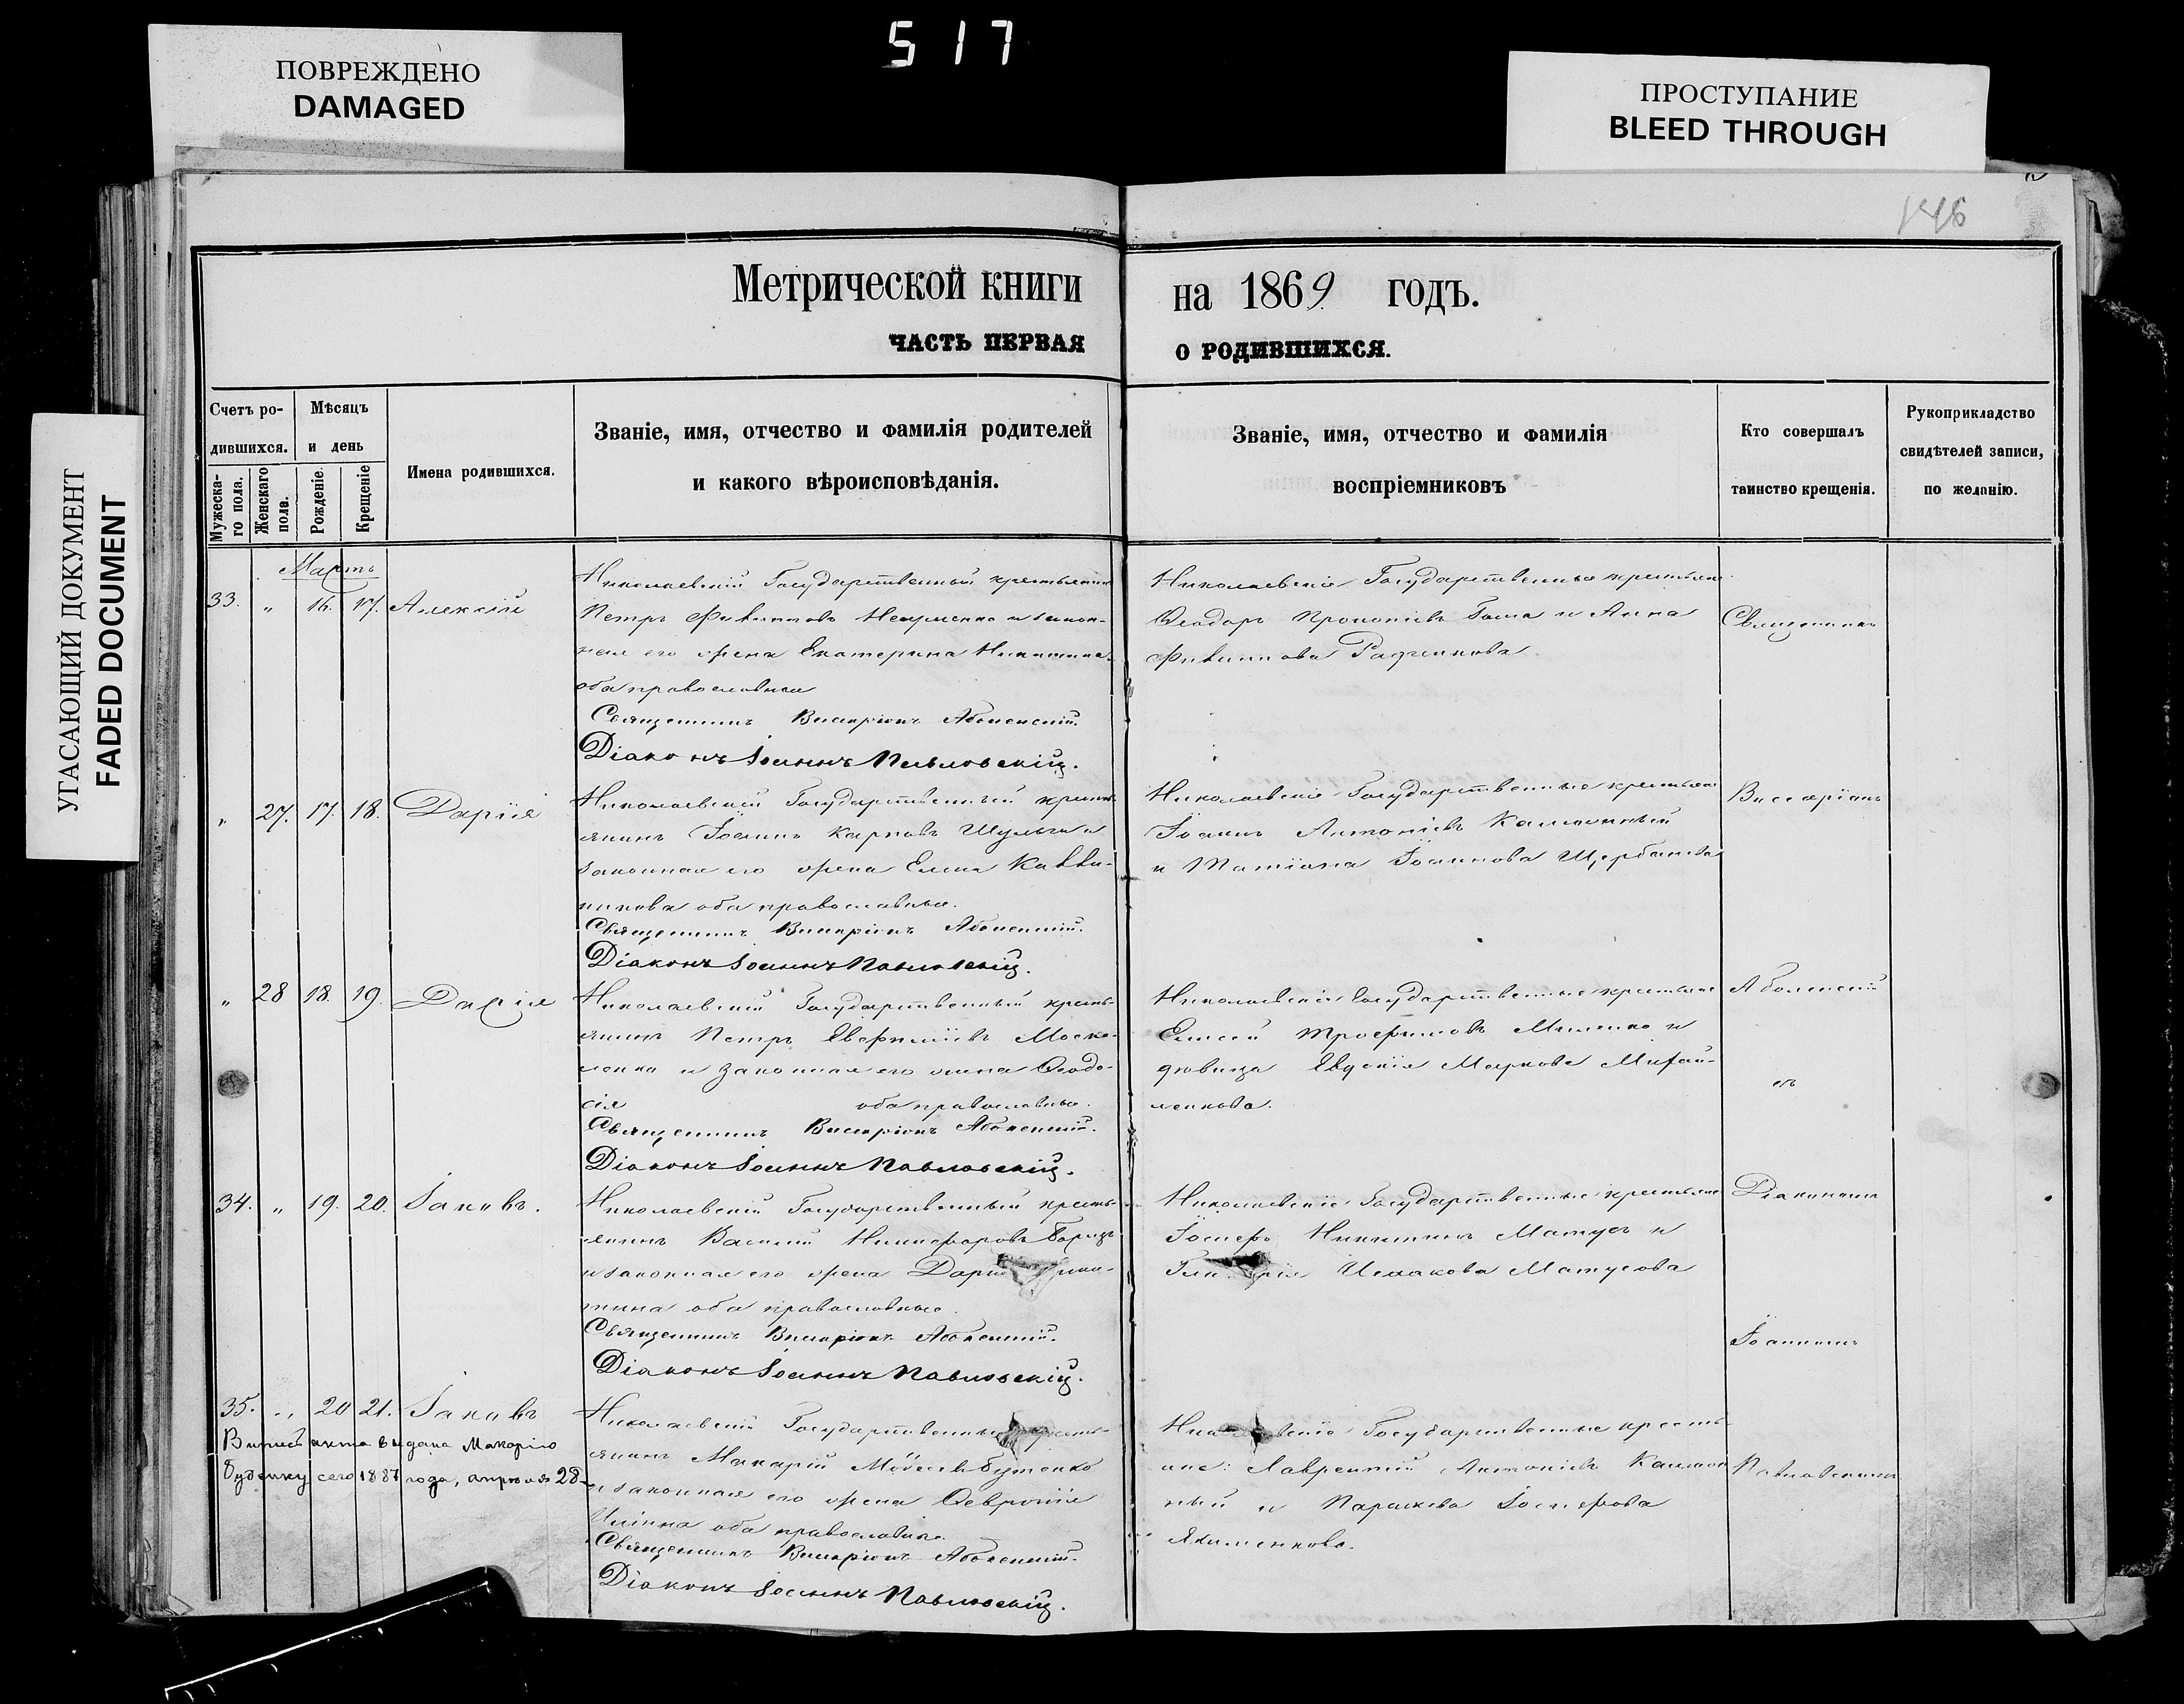 517
ПОВРЕЖДЕНО
DAMAGED
ПРОСТУПАНИЕ
BLEED THROUGH
УГАСАЮЩИЙ ДОКУМЕНТ
FADED DOCUMENT
146
Метрической книги на 1869 годъ.
ЧАСТЬ ПЕРВАЯ О РОДИВШИХСЯ.
Счетъ ро-
дившихся.
Мужеска-
го пола.
Женскаго
пола.
Мѣсяцъ
и день
Рожденіе.
Крещеніе
Имена родившихся.
Званіе, имя, отчество и фамилія родителей
и какого вѣроисповѣданія.
Званіе, имя, отчество и фамилія
воспріемниковъ
Кто совершалъ
таинство крещенія.
Рукоприкладство
свидѣтелей записи,
по желанію.
Мартъ
33. " 16. 17. Алексій
Николаевскій Государственный крестьянинъ
Петръ Филипповъ Науменко и закон-
ная его жена Екатерина Никитина
оба православные
Священникъ Виссаріонъ
Діаконъ Іоаннъ Павловскій.
Николаевскіе Государственные крестьяне
Ѳеодоръ Прокопіевъ и Анна
Филиппова
Священникъ
" 27. 17. 18. Дарія
Николаевскій Государственный кресть-
янинъ Іоаннъ Карповъ Шульга и
законная его жена Елена
оба православные.
Священникъ Виссаріонъ
Діаконъ Іоаннъ Павловскій.
Николаевскіе Государственные крестьяне
Іоаннъ Антоніевъ
и Татіана Іоаннова Щербакова
Виссаріонъ
" 28 18. 19. Дарія
Николаевскій Государственный кресть-
янинъ Петръ Евфиміевъ Моска-
ленко и законная его жена Ѳеодо-
сія оба православные.
Священникъ Виссаріонъ
Діаконъ Іоаннъ Павловскій.
Николаевскіе Государственные крестьяне
Елисей Трофимовъ и
дѣвица Евдокія Маркова Михай-
ленкова.
съ
34. " 19. 20. Іаковъ.
Николаевскій Государственный кресть-
янинъ Василій Никифоровъ
и законная его жена
тина оба православные.
Священникъ Виссаріонъ
Діаконъ Іоаннъ Павловскій.
Николаевскіе Государственные крестьяне
Іосифъ Никитинъ Матусъ и
Исаакова Матусова
Діакономъ
Іоанномъ
35. " 20 21. Іаковъ
Выпись акта выдана Макарію
Буденку сего 1887 года, апрѣля 28
Николаевскій Государственный кресть-
янинъ Макарій
и законная его жена Ѳевронія
оба православные.
Священникъ Виссаріонъ
Діаконъ Іоаннъ Павловскій.
Государственные кресть-
яне: Лаврентій Антоніевъ
и Параскева Іосифова
Якименкова.
Павловскимъ